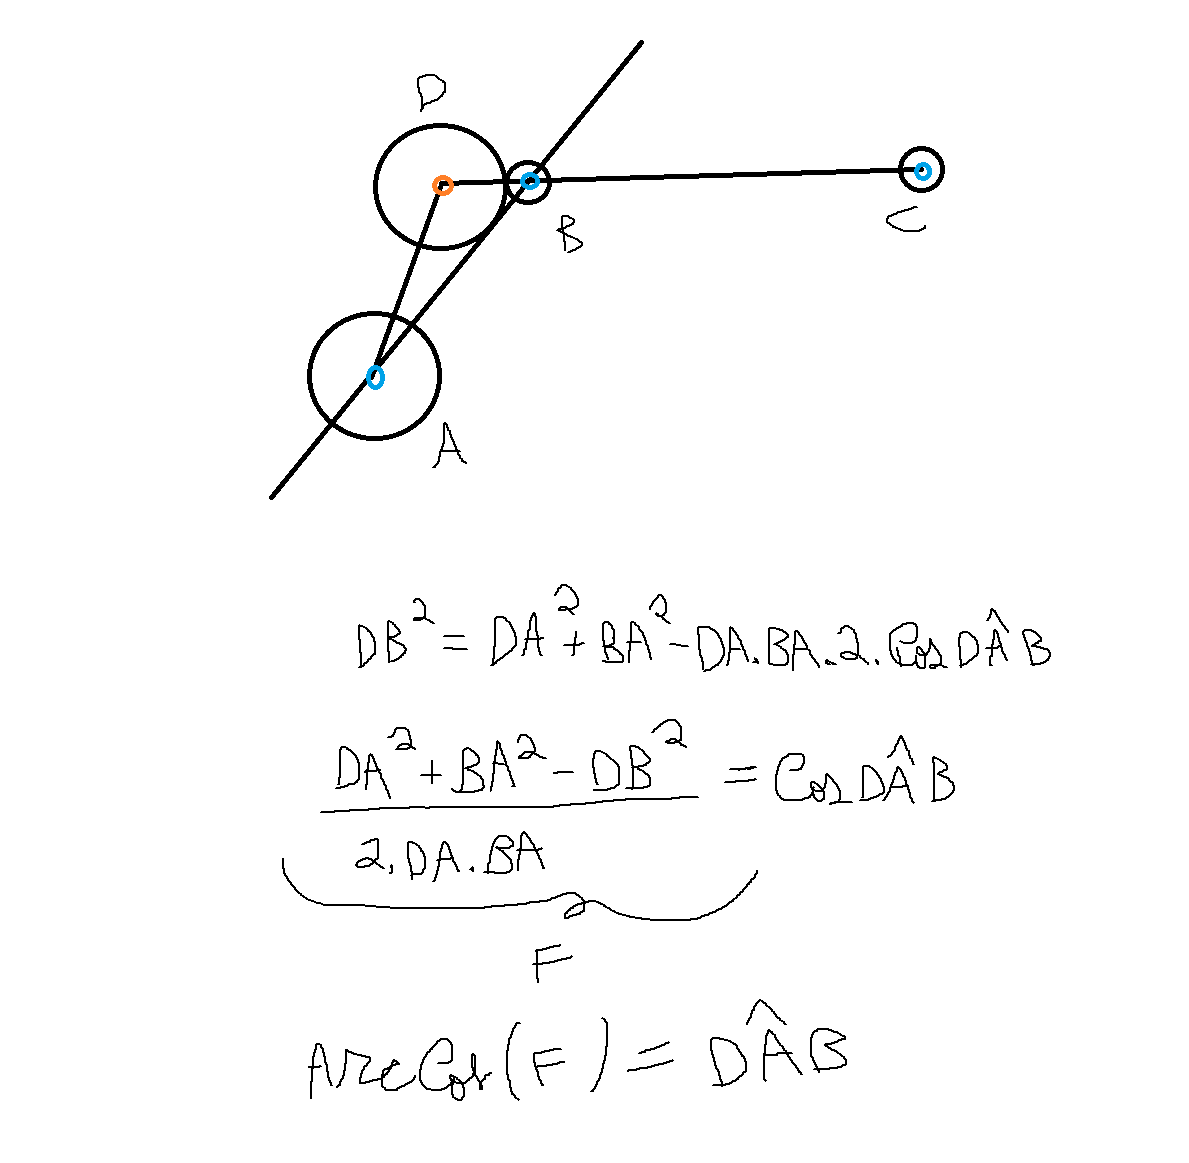 D
B
C
A
DB² = DA² + BA² - DA.BA.2.Cos DÂB
DA² + BA² - DB² = Cos DÂB
2.DA.BA
F
ArcCos(F) = DÂB